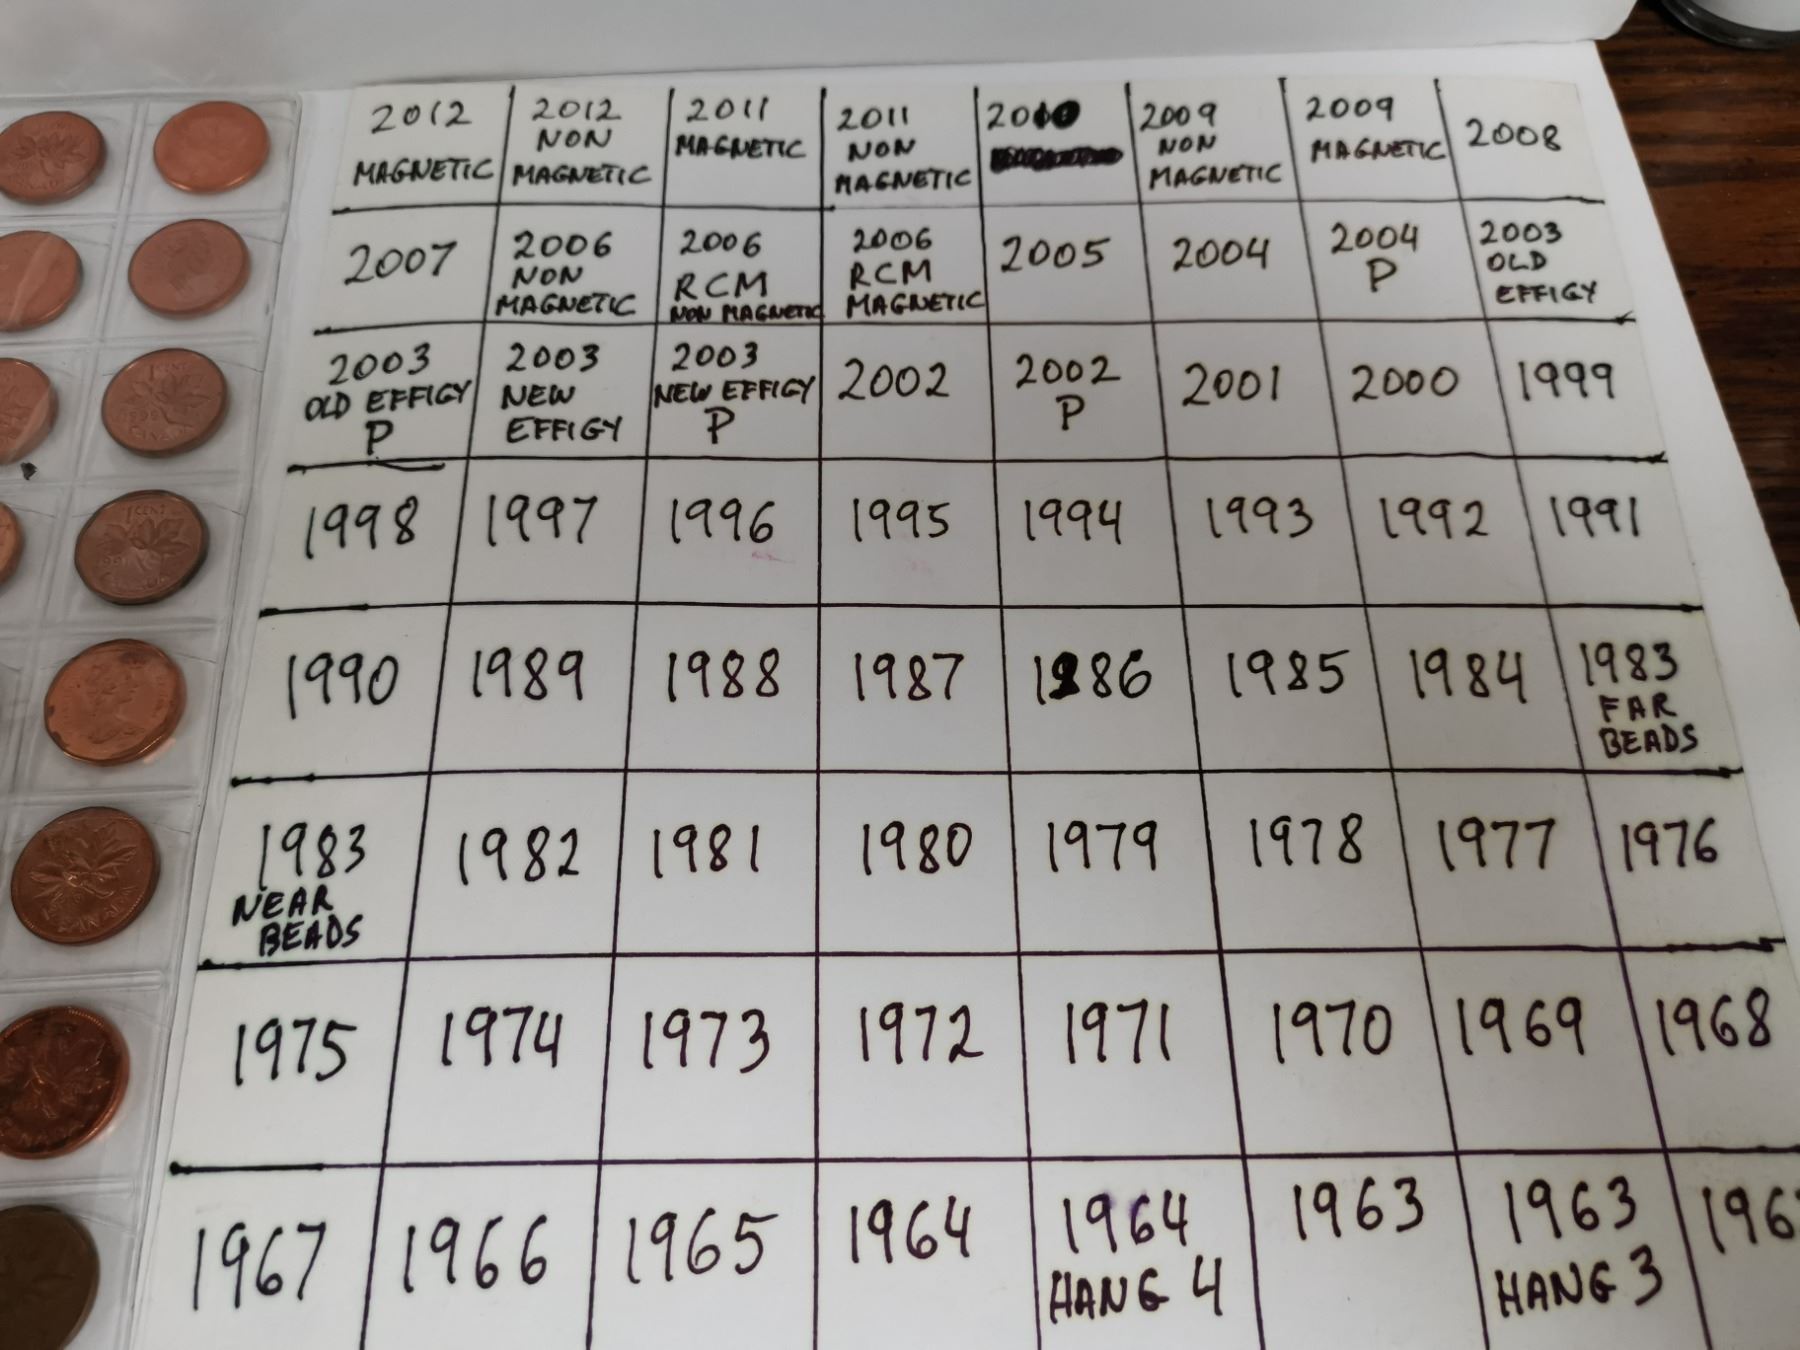 2012
MAGNETIC
2012
NON
MAGNETIC
2011
MAGNETIC
2011
NON
MAGNETIC
2010
2009
NON
MAGNETIC
2009
MAGNETIC
2008
2007
2006
NON
MAGNETIC
2006
RCM
NON MAGNETIC
2006
RCM
MAGNETIC
2005
2004
2004
P
2003
OLD
EFFIGY
2003
OLD EFFIGY
P
2003
NEW
EFFIGY
2003
NEW EFFIGY
P
2002
2002
P
2001
2000
1999
1998
1997
1996
1995
1994
1993
1992
1991
1990
1989
1988
1987
1986
1985
1984
1983
FAR
BEADS
1983
NEAR
BEADS
1982
1981
1980
1979
1978
1977
1976
1975
1974
1973
1972
1971
1970
1969
1968
1967
1966
1965
1964
1964
HANG 4
1963
1963
HANG 3
1 CENT
CANADA
1 CENT
CANADA